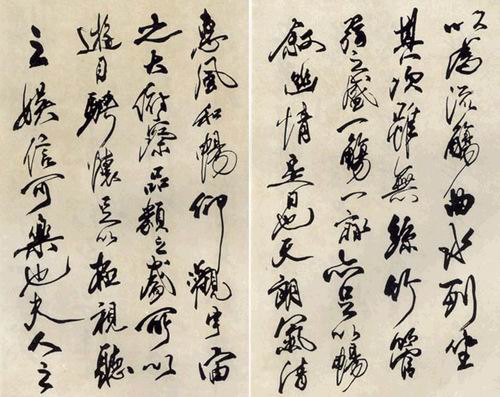 以為流觴曲水列坐
其次雖無絲竹管
弦之盛一觴一詠亦足以暢
敘幽情是日也天朗氣清
惠風和暢仰觀宇宙
之大俯察品類之盛所以
遊目騁懷足以極視聽
之娛信可樂也夫人之